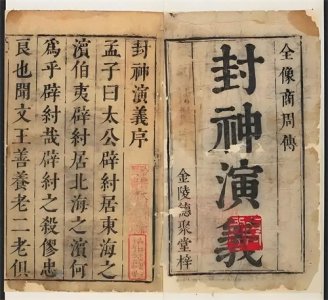 全像商周傳
封神演義
金陵德聚堂梓
封神演義序
孟子曰太公辟紂居東海之
濱伯夷辟紂居北海之濱何
爲乎辟紂哉辟紂之殺戮忠
良也聞文王善養老二老俱